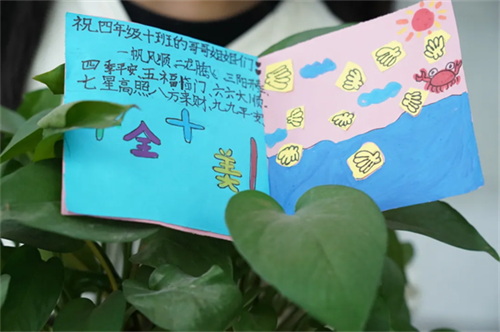 祝四年级十班的哥哥姐姐们
一帆风顺 二龙腾飞 三阳开泰
四季平安 五福临门 六六大顺
七星高照 八方来财 九九
十全十美!